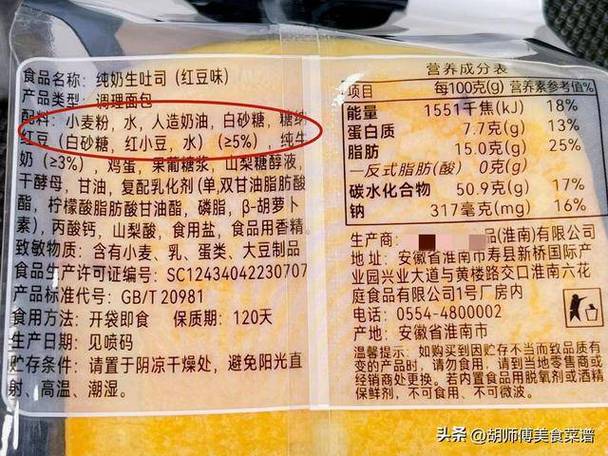 食品名称：纯奶生吐司（红豆味）
产品类型：调理面包
配料：小麦粉，水，人造奶油，白砂糖，糖纳
红豆（白砂糖，红小豆，水）（≥5%），纯牛
奶（≥3%），鸡蛋，果葡糖浆，山梨糖醇液，
干酵母，甘油，复配乳化剂（单,双甘油脂肪酸
酯，柠檬酸脂肪酸甘油酯，磷脂，β-胡萝卜
素），丙酸钙，山梨酸，食用盐，食品用香精。
致敏物质：含有小麦、乳、蛋类、大豆制品
食品生产许可证编号：SC12434042230707
产品标准代号：GB/T 20981
食用方法：开袋即食 保质期：120天
生产日期：见喷码
贮存条件：请置于阴凉干燥处，避免阳光直
射、高温、潮湿。
营养成分表
项目 每100克(g) 营养素参考值%
能量 1551千焦(kJ) 18%
蛋白质 7.7克(g) 13%
脂肪 15.0克(g) 25%
—反式脂肪(酸) 0克(g)
碳水化合物 50.9克(g) 17%
钠 317毫克(mg) 16%
生产商： 品(淮南)有限公司
地址：安徽省淮南市寿县新桥国际产
业园兴业大道与黄楼路交口淮南六花
庭食品有限公司1号厂房内
电话：0554-4800002
产地：安徽省淮南市
温馨提示：如购买到因贮存不当而致品质有
变的产品时，请勿食用，请到当地的零售商或
经销商处更换。若内置食品用脱氧剂或酒精
保鲜剂，不可食用、不可微波。
头条 @胡师傅美食菜谱